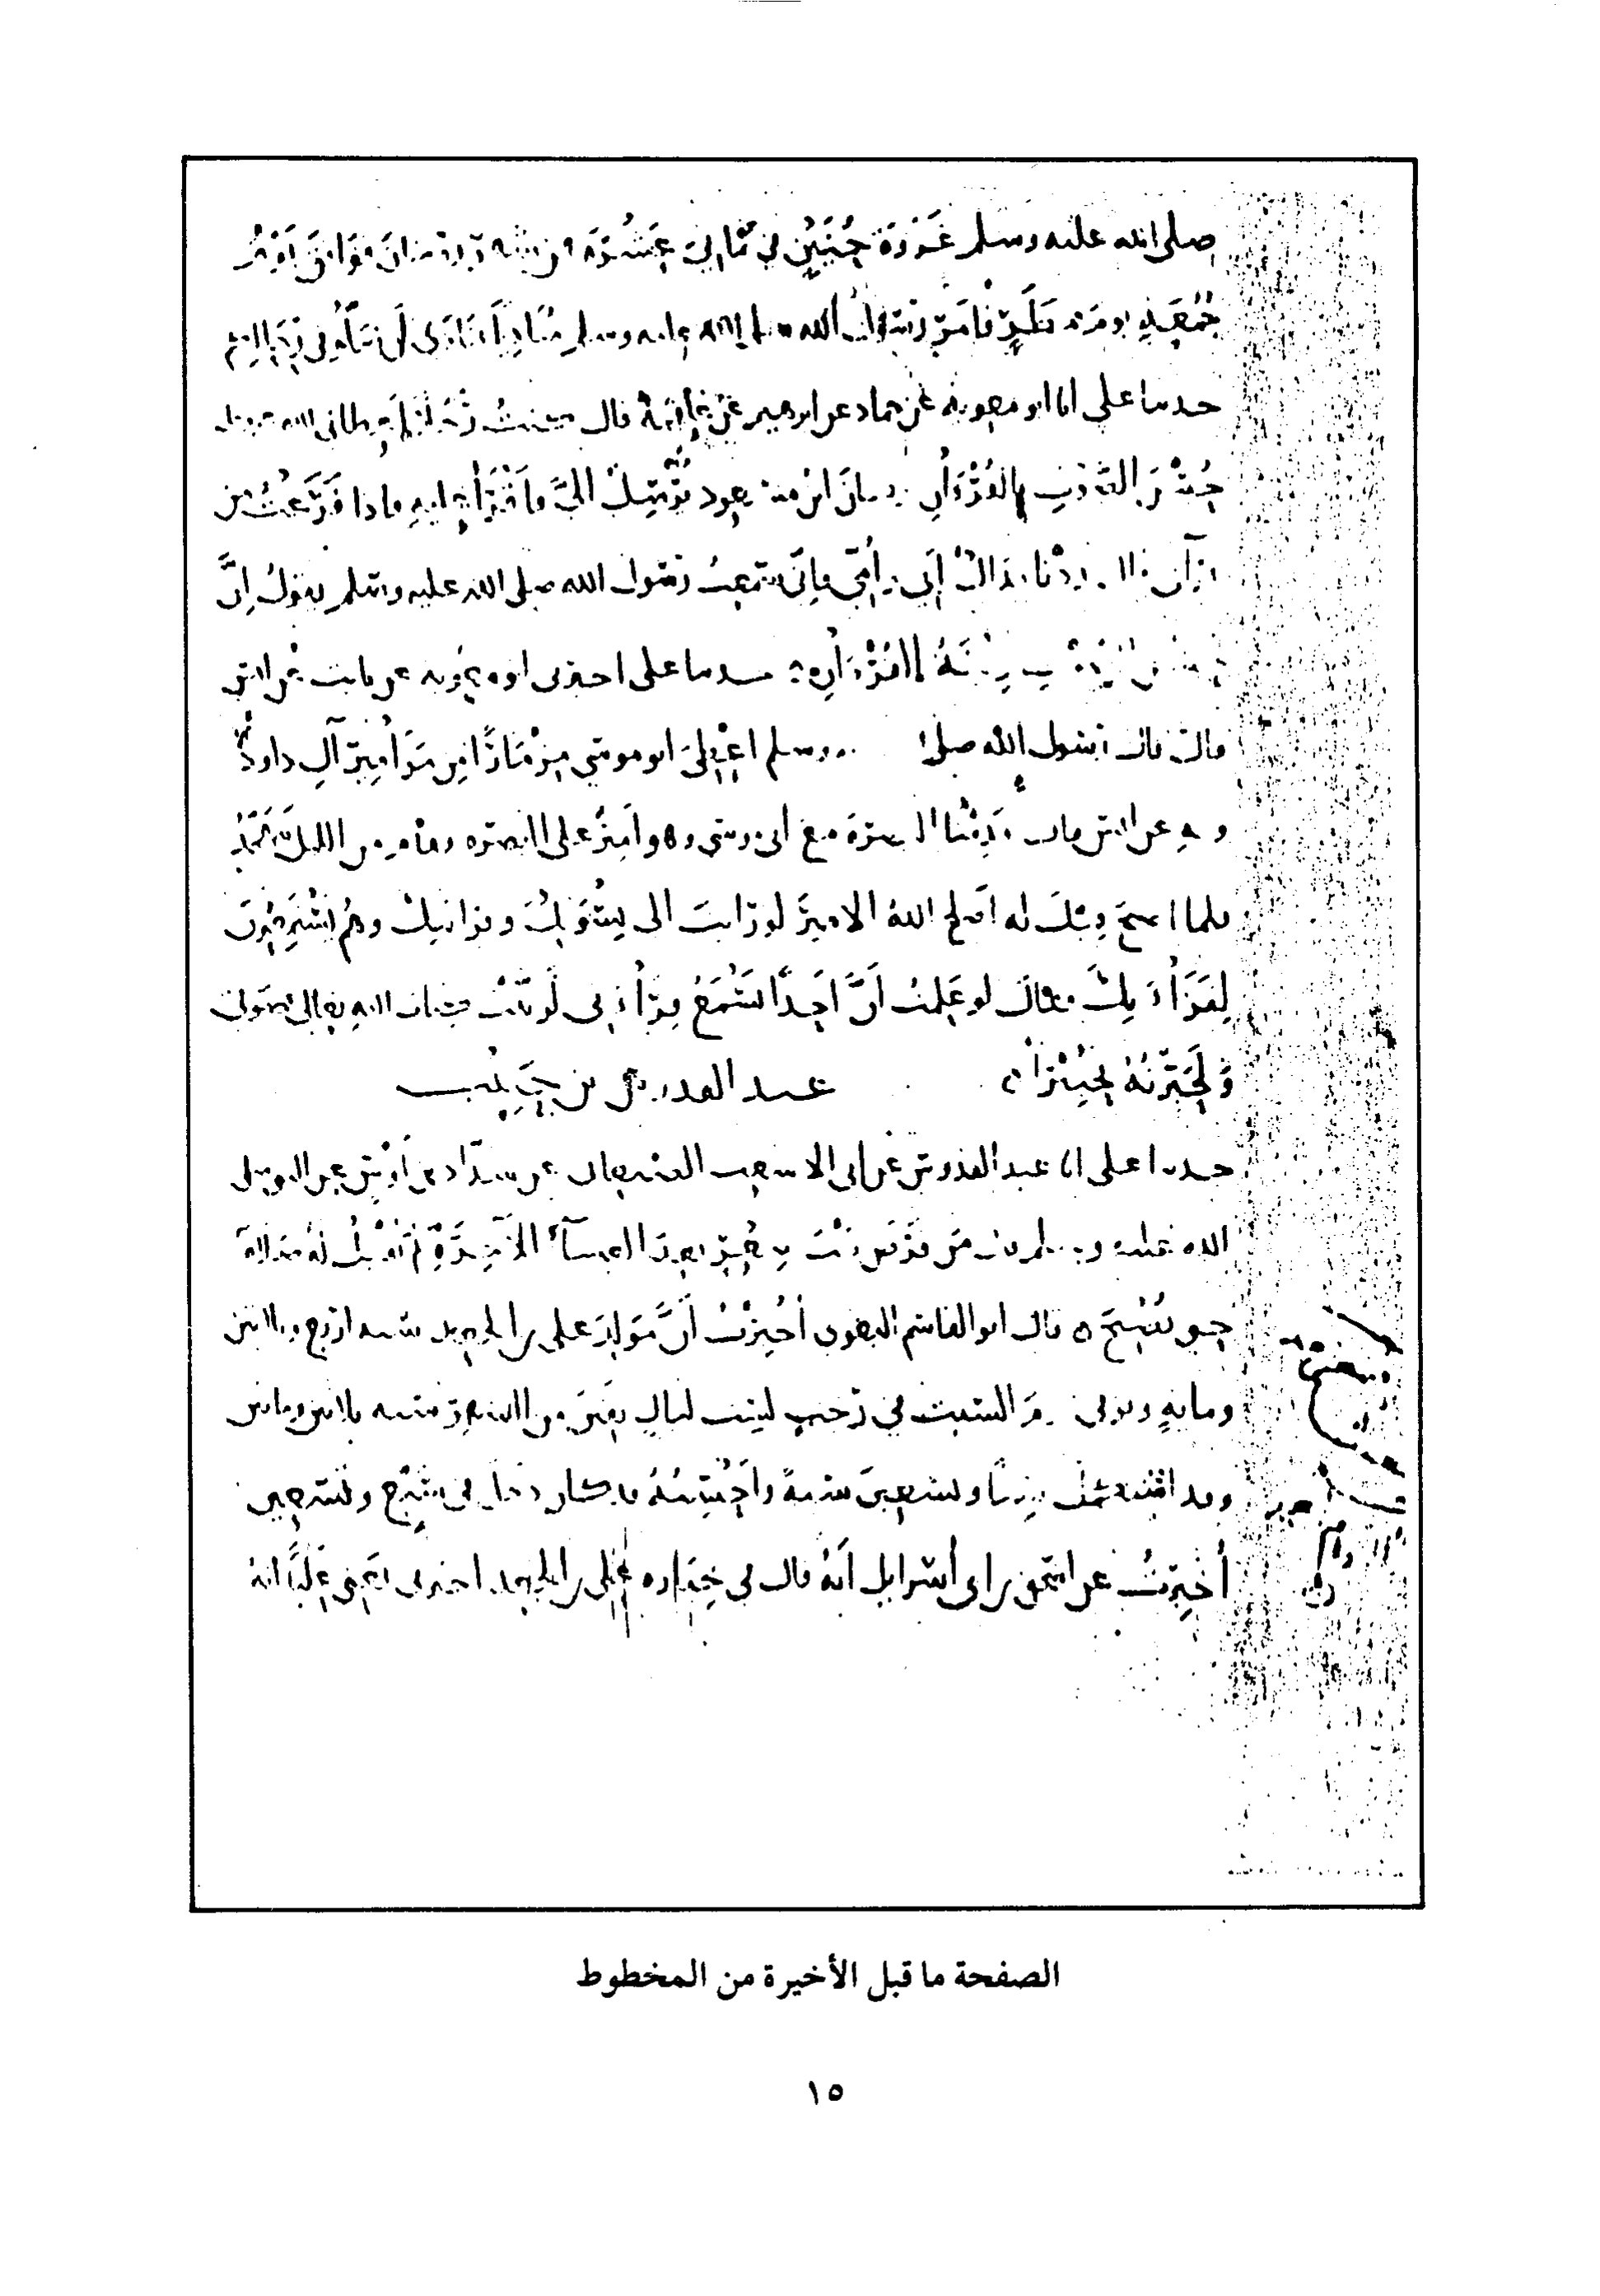 صلى الله عليه وسلم غزوة حنين في ثماني عشرة من رمضان فوافق يوم
جمعة يوم مطير فامر رسول الله صلى الله عليه وسلم مناديا فنادى أن صلوا في رحالكم
حدثنا علي انا ابو معوية عن حماد عن ابرهيم عن علقمة قال كنت رجلا اعطاني الله
حسن الصوت بالقرآن وكان ابن مسعود يرسل الي فاقرأ عليه فاذا فرغت من
قراءتي قال زدنا فداك أبي وأمي فاني سمعت رسول الله صلى الله عليه وسلم يقول إن
حسن الصوت زينة القرآن حدثنا علي اخبرني ابو معوية عن ثابت عن انس
قال قال رسول الله صلى وسلم اعطي ابو موسى مزمارا من مزامير آل داود
وبه عن انس قال قدمنا البصرة مع ابي موسى وهو امير على البصرة فقام من الليل يتهجد
فلما اصبح قيل له أصلح الله الامير لو رايت الى نسوتك وقرابتك وهم يستمعون
لقراءتك فقال لو علمت أن أحدا يستمع قراءتي لزينت كتاب الله تعالى بصوتي
ولحبرته تحبيرا
عبد القدوس بن حبيب
حدثنا علي انا عبد القدوس عن ابي الاشعث الصنعاني عن شداد بن أوس عن النبي صلى
الله عليه وسلم قال من قرض بيت شعر بعد العشاء الآخرة لم تقبل له صلاة
حتى يصبح قال ابو القاسم البغوي أخبرت أن مولد علي بن الجعد سنة اربع وثلاثين
وماية وتوفي يوم السبت في رجب لست ليال بقين من الشهر سنة ثلاثين وماتين
وقد استكمل ستا وتسعين سنة وأحسبه قد كان دخل في سبع وتسعين
أخبرت عن اسحق بن ابي اسرايل أنه قال في جنازة علي بن الجعد اخبرني يعني عليا انه
الصفحة ما قبل الأخيرة من المخطوط
١٥